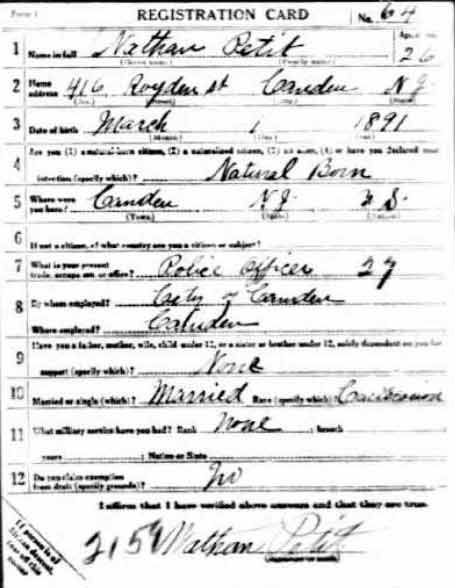 Form 1 REGISTRATION CARD No. 64
1 Name in full Nathan Petit Age, in yrs. 26
(Given name) (Family name)
2 Home address 416 Royden st Camden N J
(No.) (Street) (City) (State)
3 Date of birth March 1 1891
(Month) (Day) (Year)
4 Are you (1) a natural-born citizen, (2) a naturalized citizen, (3) an alien, (4) or have you declared your
intention (specify which)? Natural Born
5 Where were you born? Camden N.J. U S.
(Town) (State) (Nation)
6 If not a citizen, of what country are you a citizen or subject?
7 What is your present trade, occupation, or office? Police Officer 27
8 By whom employed? City of Camden
Where employed? Camden
9 Have you a father, mother, wife, child under 12, or a sister or brother under 12, solely dependent on you for
support (specify which)? None
10 Married or single (which)? Married Race (specify which)? Caucasian
11 What military service have you had? Rank None ; branch
years ; Nation or State
12 Do you claim exemption from draft (specify grounds)? No
I affirm that I have verified above answers and that they are true.
2159 Nathan Petit
If person is of African descent, tear off this corner